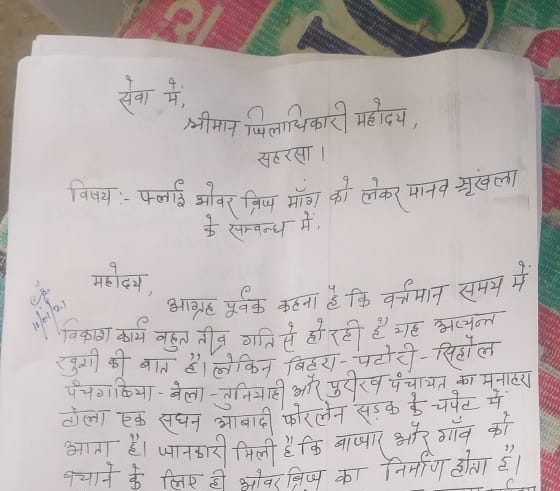 सेवा में,
श्रीमान जिलाधिकारी महोदय,
सहरसा।
विषय:- फ्लाई ओवर ब्रिज माँग को लेकर मानव श्रृंखला
के सम्बन्ध में.
महोदय,
आग्रह पूर्वक कहना है कि वर्त्तमान समय में
विकाश कार्य बहुत तीव्र गति से हो रही है यह अत्यन्त
खुशी की बात है। लेकिन बिहरा - पटोरी - सिहौल
पंचगछिया - बेला - तुनियाही और पुरीख पंचायत का मनोहरा
टोला एक सघन आबादी फोरलेन सड़क के चपेट में
आता है। जानकारी मिली है कि बाजार और गाँव को
बचाने के लिए ही ओवर ब्रिज का निर्माण होता है।